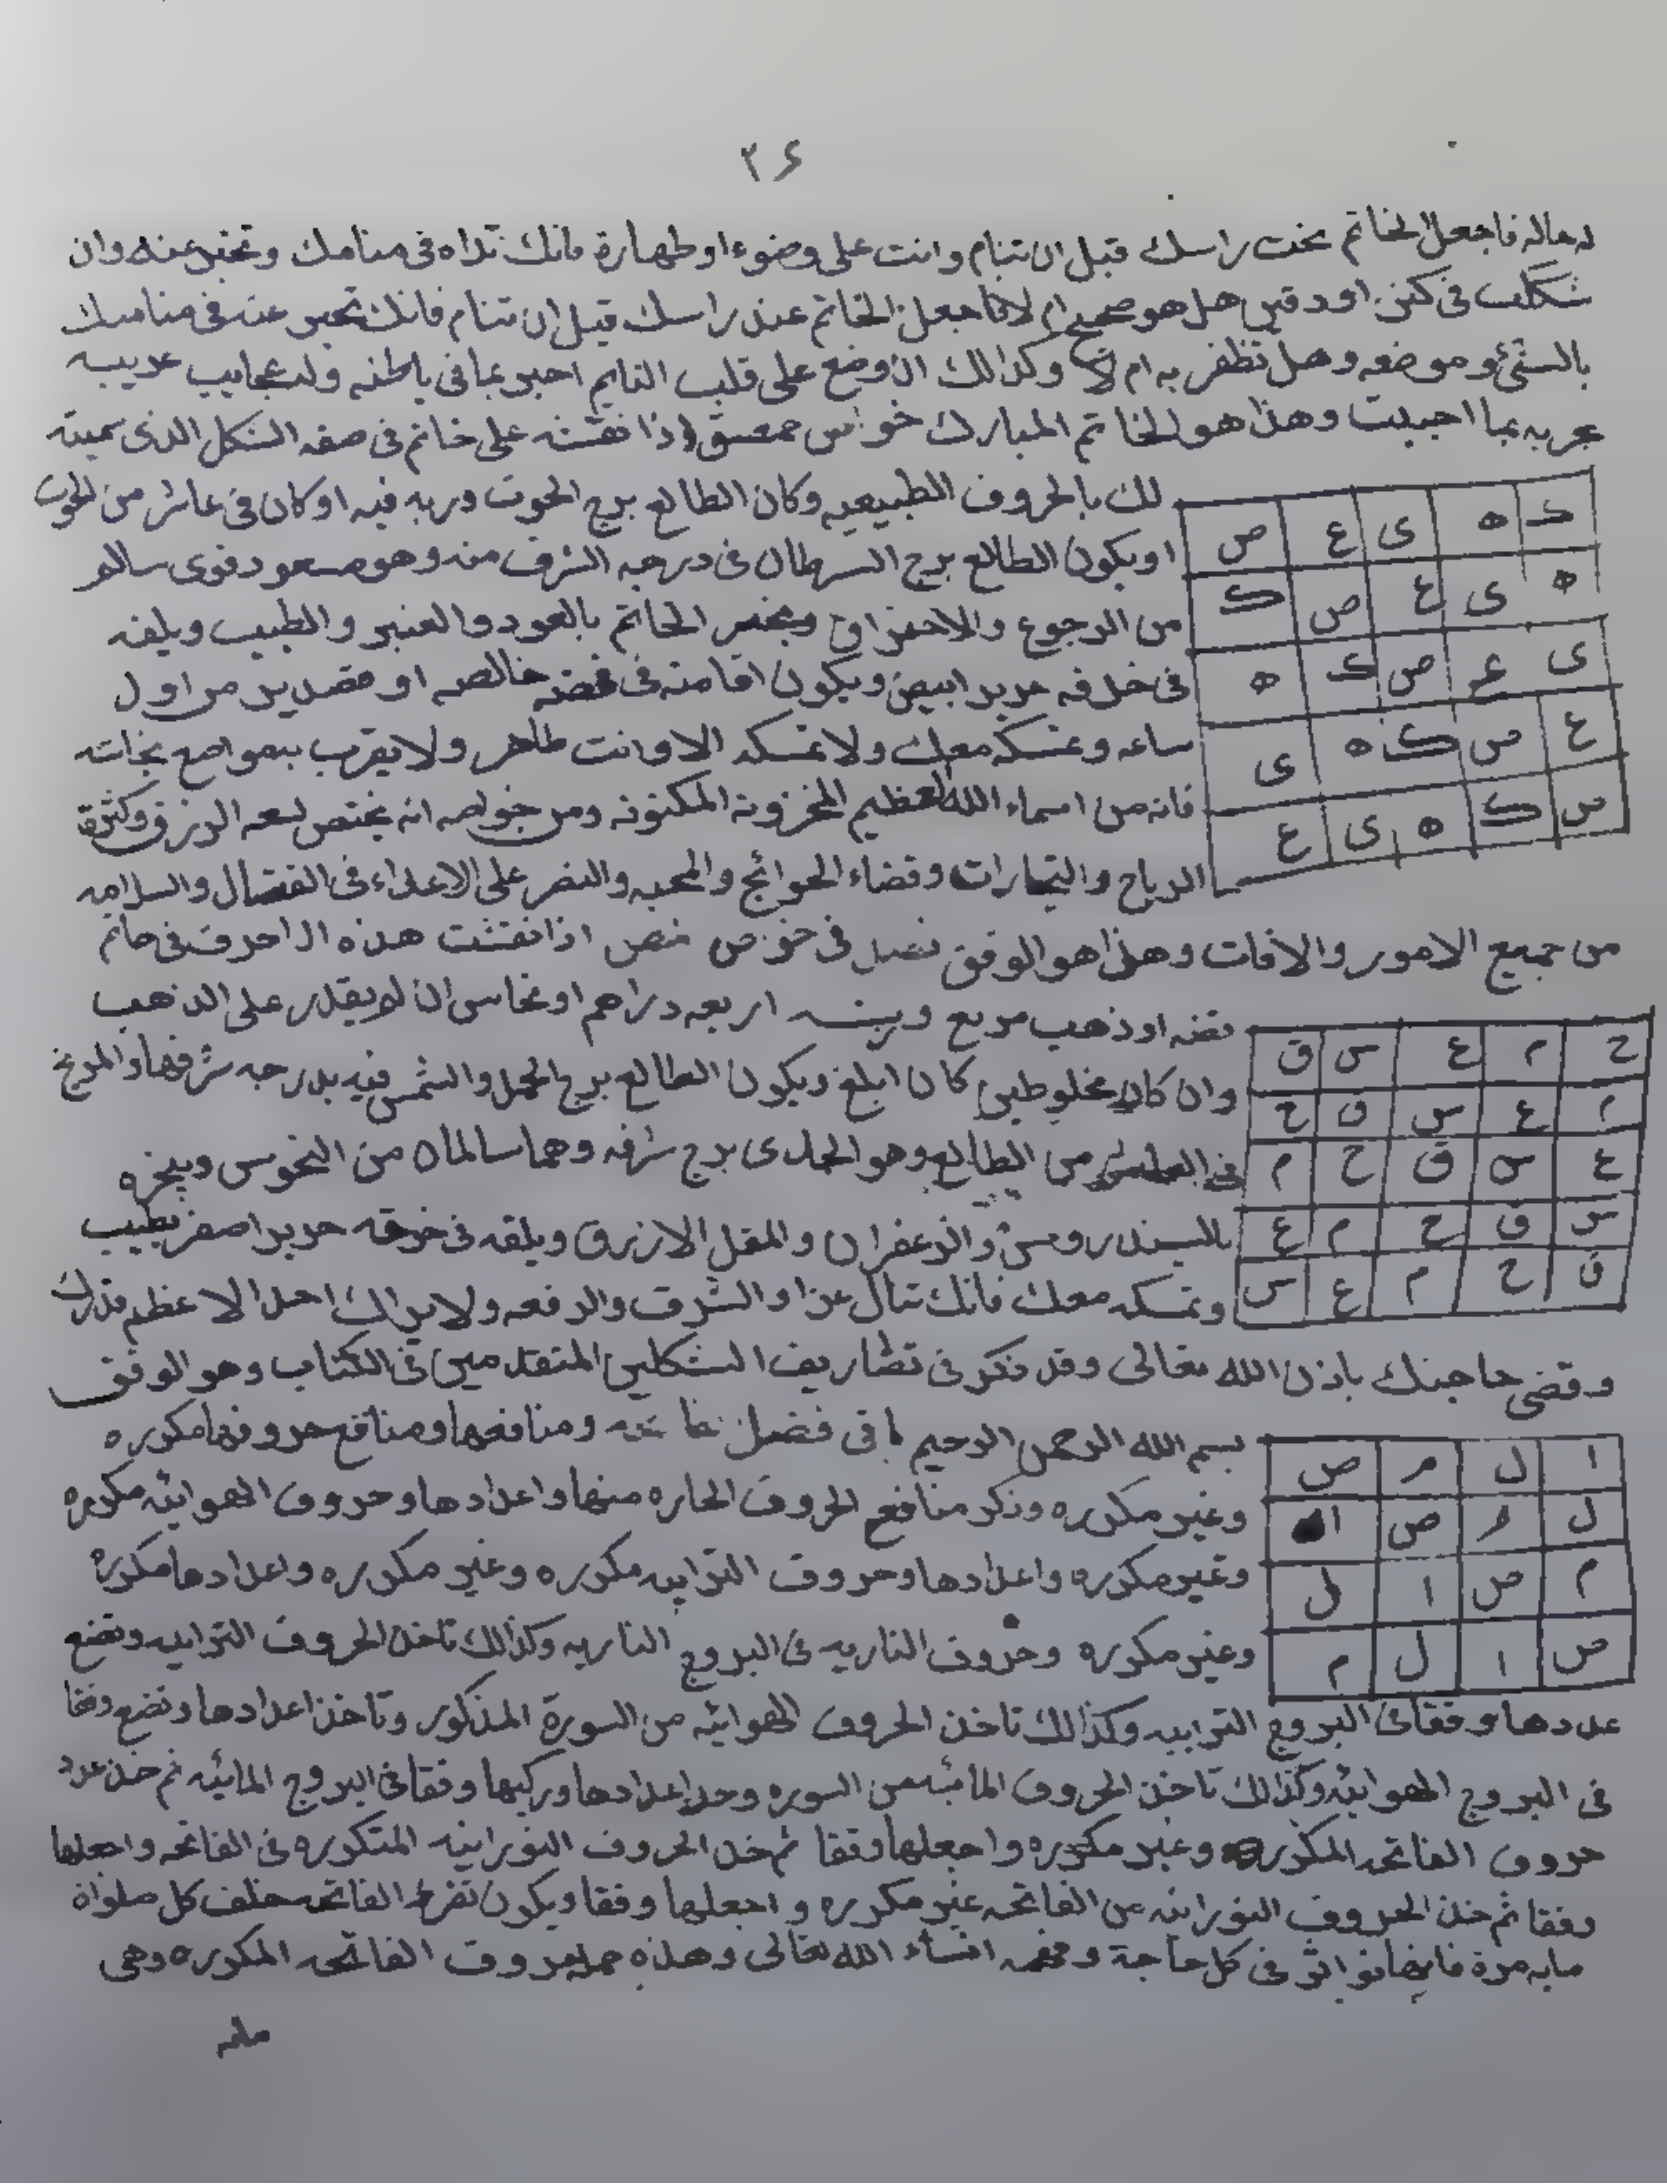 ٣۶
له حاله فاجعل الخاتم تحت راسك قبل ان تنام وانت على وضوء او طهارة فانك تراه فى منامك وتخبر عنه وان
شكلت فى كنز او دفين هل هو صحيح ام لا فاجعل الخاتم عند راسك قبل ان تنام فانك تخبر عنه فى منامك
بالشئ وموضعه وهل تظفر به ام لا وكذالك ان وضع على قلب النايم اخبر بما فى باطنه وله عجايب غريبه
عربه بما احببت وهذا هو الخاتم المبارك خواص حمعسق اذا نقشته على خاتم فى صفه الشكل الذى سميته
لك بالحروف الطبيعيه وكان الطالع برج الحوت وربه فيه او كان فى عاشر من الحوت
او يكون الطالع برج السرطان فى درجه الشرف منه وهو مسعود قوى سالم
من الرجوع والاحتراق ويبخر الخاتم بالعود والعنبر والطيب ويلفه
فى خرقه حرير ابيض ويكون اقامته فى فضه خالصه او قصدير من اول
ساعه وتمسكه معك ولا تمسكه الا وانت طاهر ولا يقرب بمواضع نجاسه
فانه من اسماء الله العظيم المخزونة المكنونه ومن خواصه انه يختص لسعه الرزق وكثرة
الرباح والتجارات وقضاء الحوائج والمحبه والنصر على الاعداء فى القتال والسلامه
ك ه ى ع ص
ه ى ع ص ك
ى ع ص ك ه
ع ص ك ه ى
ص ك ه ى ع
من جميع الامور والافات وهذا هو الوفق فصل فى خواص اذا نقشت هذه الاحرف فى خاتم
فضه او ذهب مربع وزنه اربعه دراهم او نحاس ان لم يقدر على الذهب
وان كان مخلوطين كان ابلغ ويكون الطالع برج الحمل والشمس فيه بدرجه شرفها والمريخ
فى العاشر من الطالع وهو الجدى برج شرفه وهما سالمان من النحوس ويبخره
بالسندروس والزعفران والمقل الازرق ويلفه فى خرقه حرير اصفر بطيب
وتمسكه معك فانك تنال عزا والشرف والرفعه ولا يراك احدا الا عظم قدرك
ح م ع س ق
م ع س ق ح
ع س ق ح م
س ق ح م ع
ق ح م ع س
وقضى حاجتك باذن الله تعالى وقد فكر فى تصاريف الشكلين المتقدمين فى الكتاب وهو الوفق
بسم الله الرحمن الرحيم باقى فضل ومنافعها ومنافع حروفها مكرره
وغير مكرره وذكر منافع الحروف الحاره منها واعدادها وحروف الهوائيه مكرره
وغير مكرره واعدادها وحروف الترابيه مكرره وغير مكرره واعدادها مكرره
وغير مكرره وحروف الناريه فى البروج الناريه وكذالك تاخذ الحروف الترابيه وتضع
ا ل م ص
ل م ص ا
م ص ا ل
ص ا ل م
عددها وفقا فى البروج الترابيه وكذالك تاخذ الحروف الهوائيه من السورة المذكور وتاخذ اعدادها وتضع وفقا
فى البروج الهوائيه وكذالك تاخذ الحروف المائيه من السوره وخذ اعدادها وركبها وفقا فى البروج المائيه ثم خذ عدد
حروف الفاتحه المكرره وغير مكرره واجعلها وفقا ثم خذ الحروف النورانيه المتكرره فى الفاتحه واجعلها
وفقا ثم خذ الحروف النورانيه من الفاتحه غير مكرره واجعلها وفقا ويكون تقرا الفاتحه خلف كل صلواة
مايه مرة فى كل حاجة انشاء الله تعالى وهذه حروف الفاتحه المكرره وهى